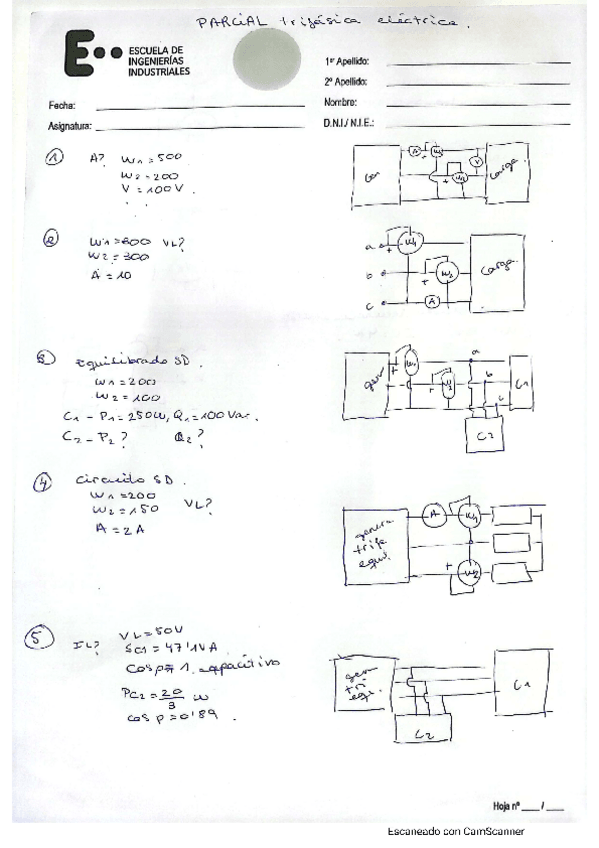 PARCIAL trifásica eléctrica.
ESCUELA DE
INGENIERÍAS
INDUSTRIALES
1er Apellido:
2º Apellido:
Nombre:
D.N.I./ N.I.E.:
Fecha:
Asignatura:
① A? W1=500
W2=200
V=100V
Gen
A
W1
W2
V
Carga
② W1=800 VL?
W2=300
A=10
a
b
c
W1
W2
A
Carga
③ Equilibrado SD.
W1=200
W2=100
C1 - P1=250W, Q1=100Var.
C2 - P2? Q2?
gen
a
b
c
C1
C2
④ Circuito SD.
W1=200
W2=150 VL?
A=2A
genera
trifa
equi.
A
W1
W2
⑤ IL? VL=50V
SC1=47'1VA
capacitivo
PC2=20/3 W
cos ρ=0'89.
gen
tri
equi.
C1
C2
Hoja nº ___ / ___
Escaneado con CamScanner